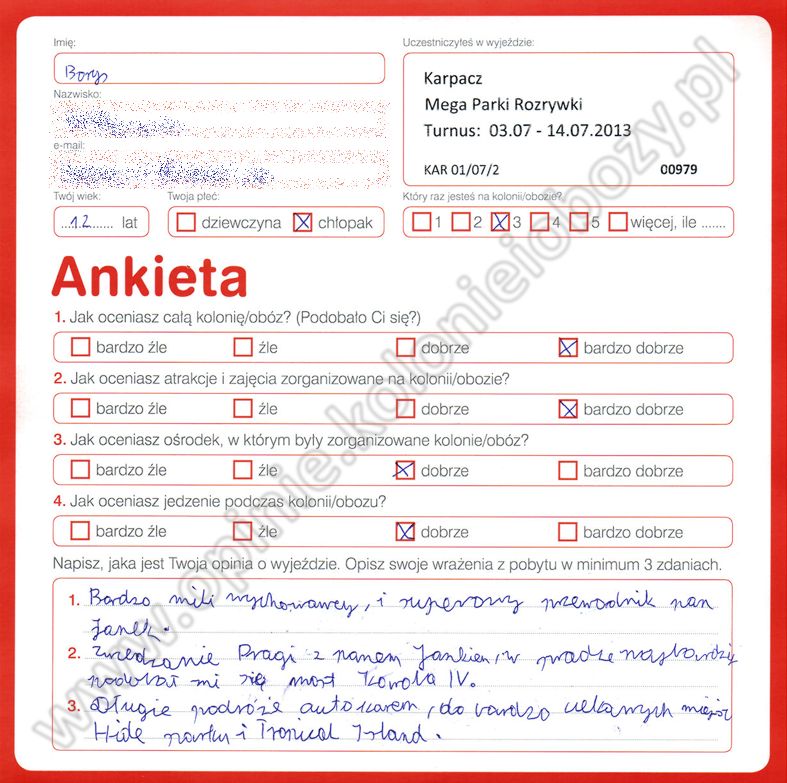 Imię:
Borys
Nazwisko:
e-mail:
Uczestniczyłeś w wyjeździe:
Karpacz
Mega Parki Rozrywki
Turnus: 03.07 - 14.07.2013
KAR 01/07/2 00979
Twój wiek:
...12...... lat
Twoja płeć:
dziewczyna chłopak
Który raz jesteś na kolonii/obozie?
1 2 3 4 5 więcej, ile .......
Ankieta
1. Jak oceniasz całą kolonię/obóz? (Podobało Ci się?)
bardzo źle źle dobrze bardzo dobrze
2. Jak oceniasz atrakcje i zajęcia zorganizowane na kolonii/obozie?
bardzo źle źle dobrze bardzo dobrze
3. Jak oceniasz ośrodek, w którym były zorganizowane kolonie/obóz?
bardzo źle źle dobrze bardzo dobrze
4. Jak oceniasz jedzenie podczas kolonii/obozu?
bardzo źle źle dobrze bardzo dobrze
Napisz, jaka jest Twoja opinia o wyjeździe. Opisz swoje wrażenia z pobytu w minimum 3 zdaniach.
1. Bardzo mili wychowawcy, i superowy przewodnik pan
Janek.
2. Zwiedzanie Pragi z panem Jankiem, w pradze najbardziej
podobał mi się most Karola IV.
3. Długie podróże autokarem, do bardzo ciekawych miejsc
Hide parku i Tropical Island.
www.opinie.kolonieiobozy.pl